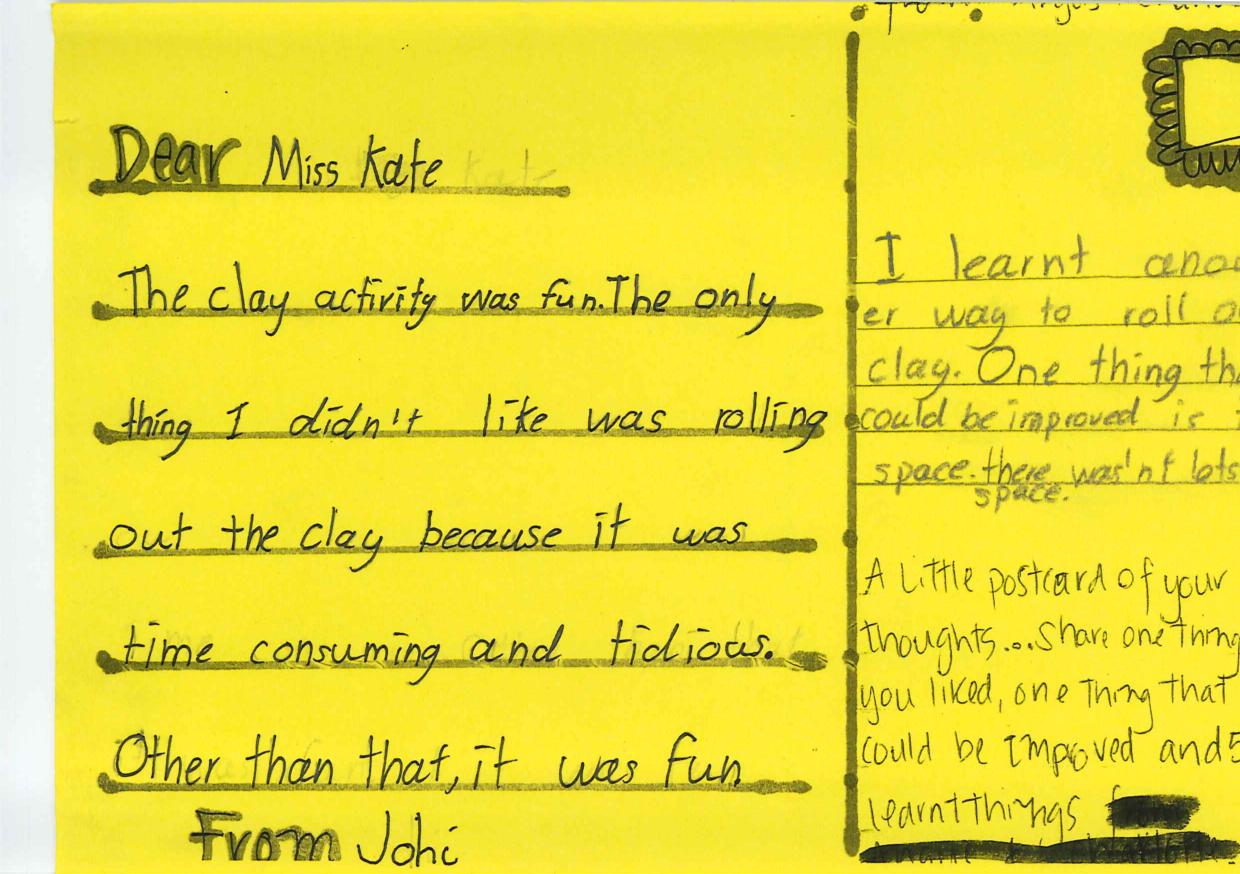 Dear Miss Kate
The clay activity was fun. The only
thing I didn't like was rolling
out the clay because it was
time consuming and tidious.
Other than that, it was fun
From Johi
I learnt anoo
er way to roll o
clay. One thing tha
could be improved is t
space. there was'nt lots
space.
A Little postcard of your
thoughts...Share one thing
you liked, one Thing that
could be Improved and 5
learnt things